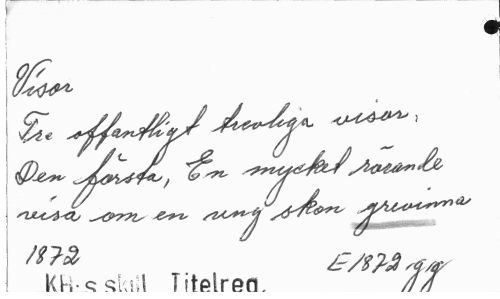 Visor
Tre offentligt trevliga visor.
Den första, En mycket rörande
visa om en ung skön grevinna
1872 E 1872 g/g
KB:s skill. Titelreg.